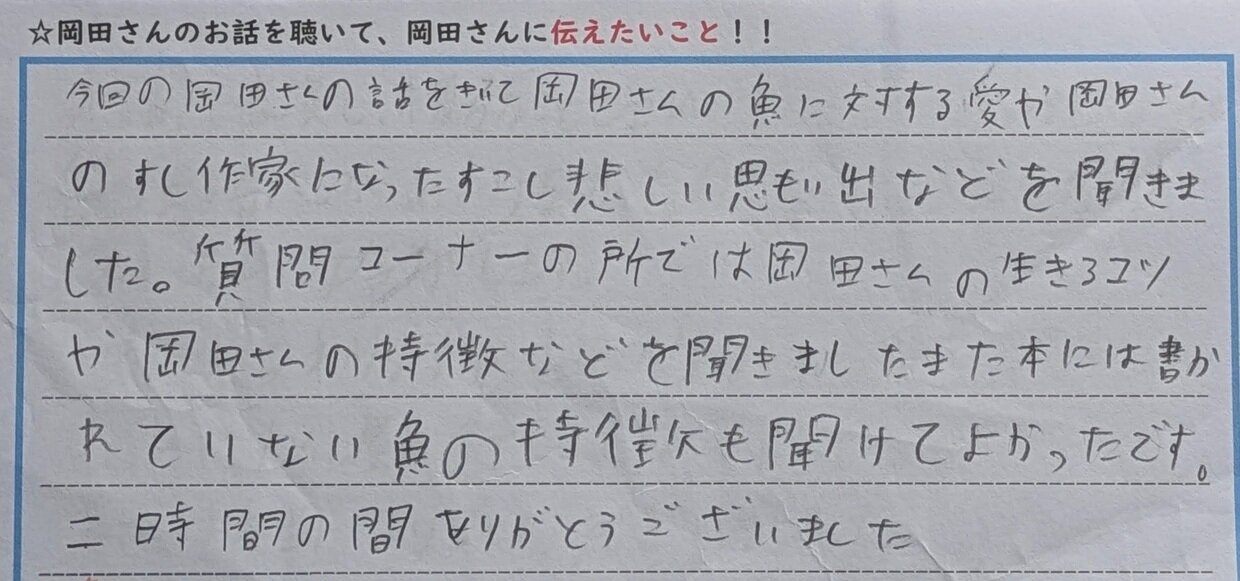 ☆岡田さんのお話を聴いて、岡田さんに伝えたいこと！！
今回の岡田さんの話をきいて岡田さんの魚に対する愛や岡田さん
のすし作家になったすこし悲しい思もい出などを聞きま
した。質問コーナーの所では岡田さんの生きるコツ
や岡田さんの特徴などを聞きましたまた本には書か
れていない魚の特徴も聞けてよかったです。
二時間の間ありがとうございました